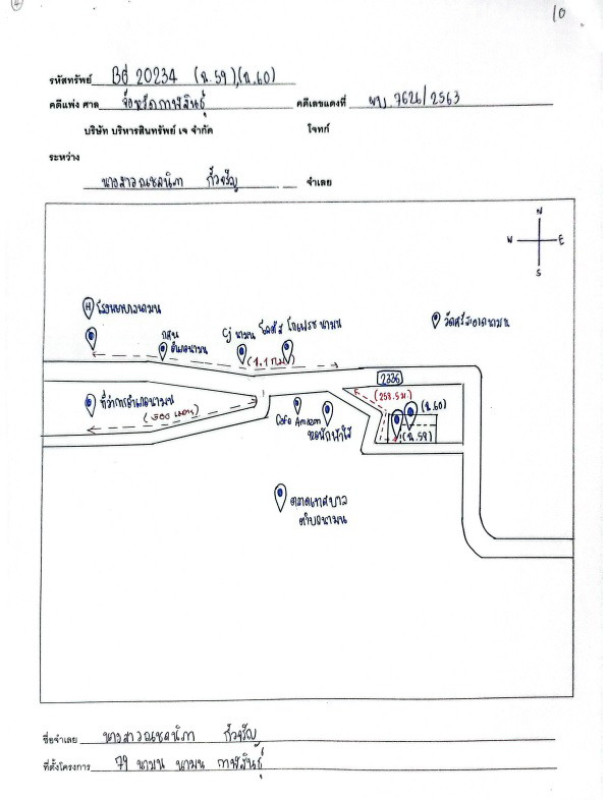 10
รหัสทรัพย์ Bd 20234 (ฉ.59),(ฉ.60)
คดีแพ่ง ศาล จังหวัดกาฬสินธุ์ คดีเลขแดงที่ ผบ. 7626/2563
บริษัท บริหารสินทรัพย์ เจ จำกัด โจทก์
ระหว่าง
นางสาวณชคนิภา จำเลย
N
W E
S
H โรงพยาบาลนามน
กศน อำเภอนามน
Cj นามน
โลตัส โกเฟรช นามน
วัดศรีสะอาดนามน
(1.1 กม)
2336
(258.5 ม.)
ที่ว่าการอำเภอนามน
(500 เมตร)
Cafe Amazon
หอพักฟ้าใส
(ฉ.60)
(ฉ.59)
ตลาดเทศบาล
ตำบลนามน
ชื่อจำเลย นางสาวณชคนิภา
ที่ตั้งโครงการ 79 นามน นามน กาฬสินธุ์